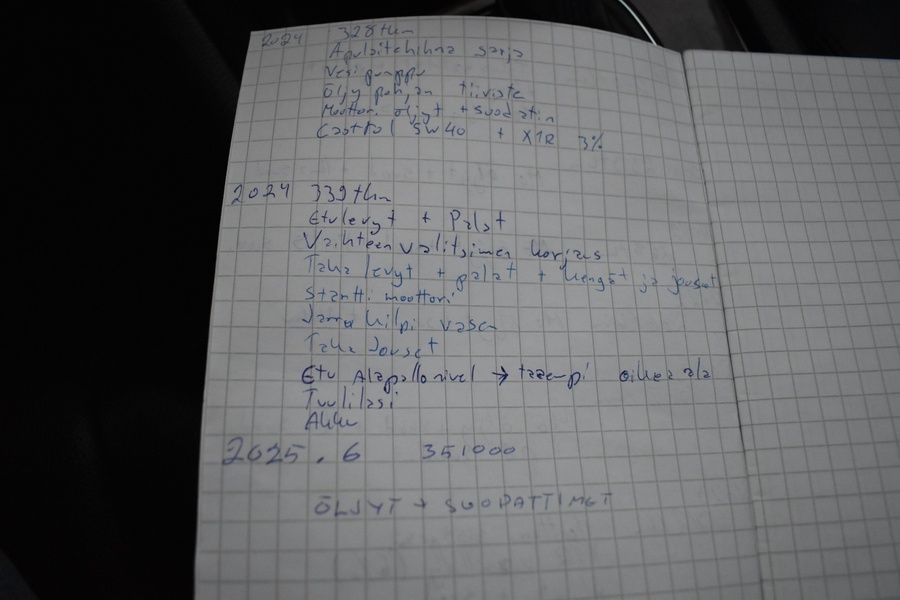 2024 328tkm
Apulaitehihna sarja
Vesi pumppu
Öljy pohjan tiiviste
Moottori öljyt + suodatin
Castrol 5W40 + X1R 3%
2024 339tkm
Etulevyt + Palat
Vaihteen valitsimen korjaus
Taka levyt + palat + kengät ja jouset
Startti moottori
Jarru kilpi vasen
Taka Jouset
Etu Alapallonivel → taaempi oikea ala
Tuulilasi
Akku
2025.6 351000
ÖLJYT + SUODATTIMET